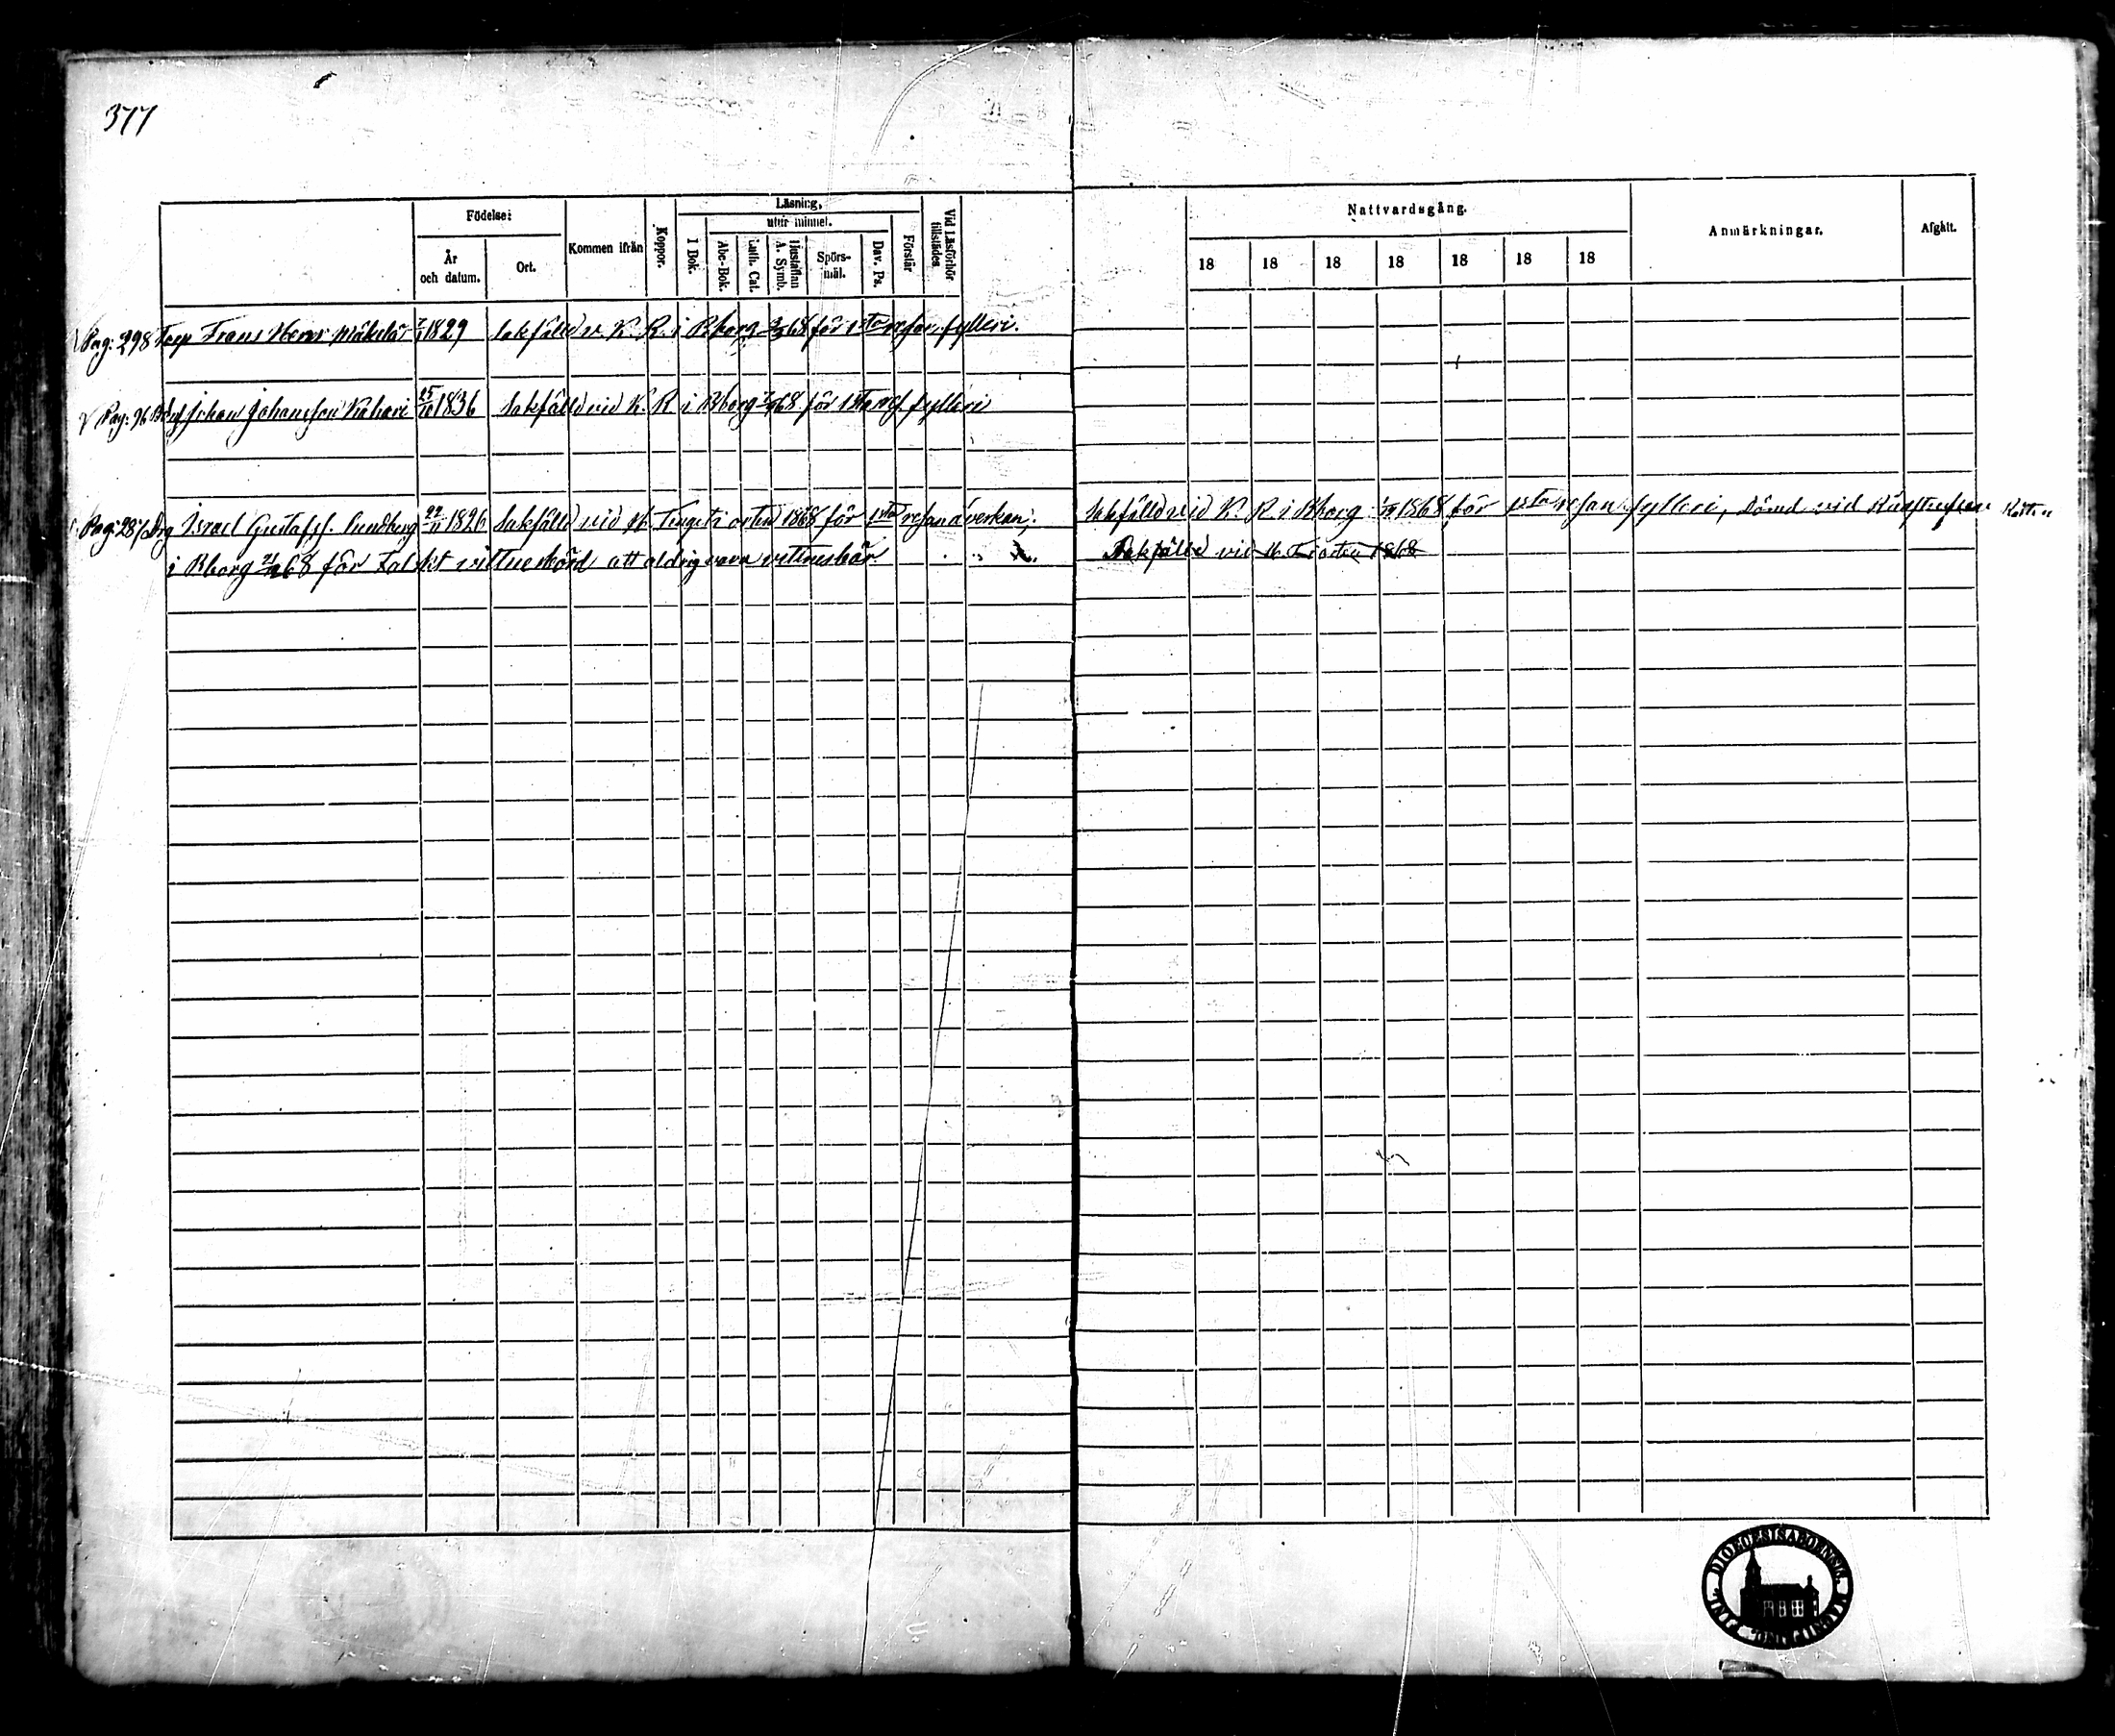 377
Födelse:
Läsning,
utur minnet.
År och datum.
Ort.
Kommen ifrån
Koppor.
I Bok.
Abc-Bok.
Luth. Cat.
Hustaflan A. Symb.
Spörsmål.
Dav. Ps.
Förstår
Vid Läsförhör tillstädes
Nattvardsgång.
18 18 18 18 18 18 18
Anmärkningar.
Afgått.
Pag: 298 Frans 1829 Sakfälld v. K. R. i Bborg 68 för 1sta resan fylleri.
Pag: 96 Johan Johansson 25/10 1836 Sakfälld vid K. R i Bborg 68 för 1sta res. fylleri
Pag: 287 Israel Gustafss. Lundberg 22/11 1826 Sakfälld vid H. Tinget i orten 1868 för 1sta resan åverkan; Sakfälld vid K. R i Bborg 1868 för 1sta resan fylleri, Dömd vid Rådstufvu Rätten
i Bborg 68 för Falskt vittnesbörd att aldrig vara vittnesbär. Sakfälld vid H. T i orten 1868
DIOECESIS ABOENSIS